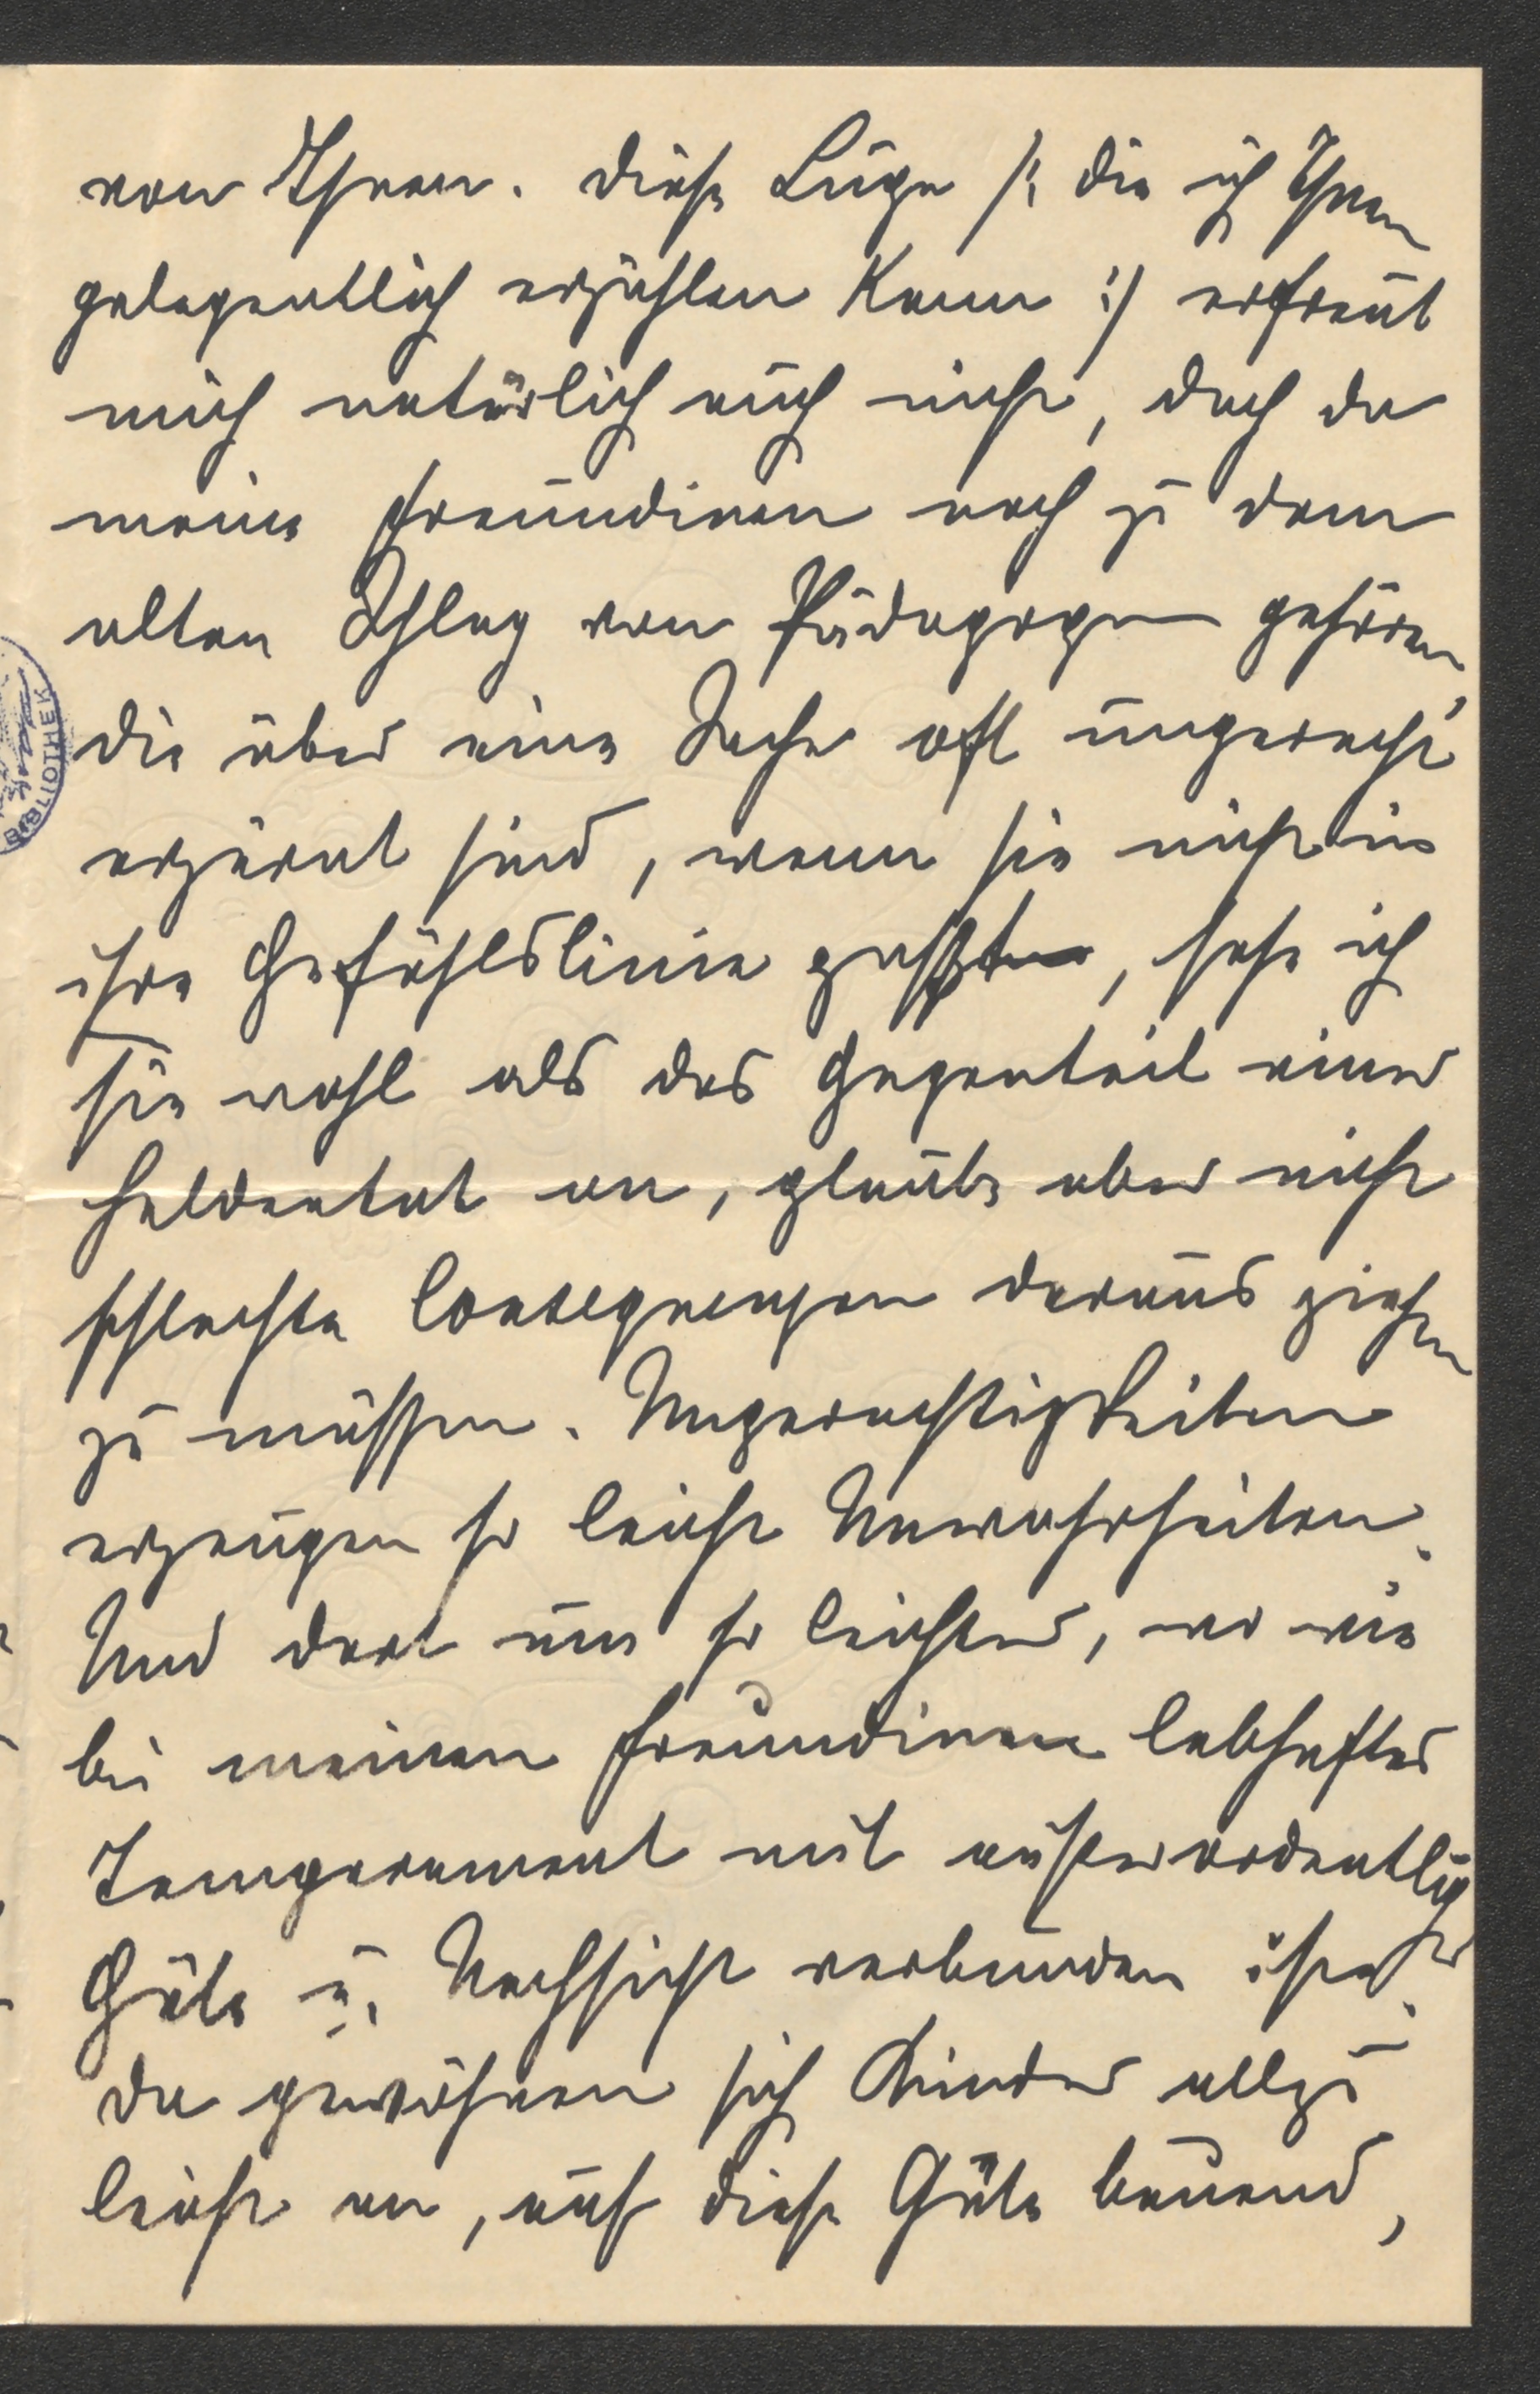 von Ihnen. Diese Lüge /: die ich Ihnen
gelegentlich erzählen kann :/ erfreut
mich natürlich auch nicht, doch da
meine Freundinen noch zu dem
alten Schlag von Pädagogen gehören,
die über eine Sache oft ungerecht
erzürnt sind, wenn sie nicht in
ihre Gefühlslinie passt, sehe ich
sie wohl als das Gegenteil einer
Heldentat an, glaube aber nicht
schlechte Consequenzen daraus ziehen
zu müssen. Ungerechtigkeiten
erzeugen so leicht Unwahrheiten.
Und dort um so leichter, wo wie
bei meinen Freundinen lebhaftes
Temperament mit außerordentlicher
Güte u. Nachsicht verbunden ist.
Da gewöhnen sich Kinder allzu
leicht an, auf diese Güte bauend,
BIBLIOTHEK